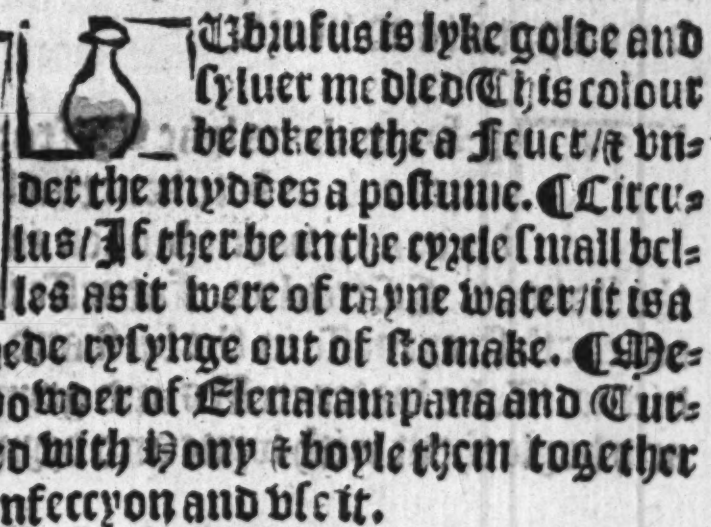 Ubrufus is lyke golde and
syluer medled This colour
betokenethe a Feuer/& vn=
der the myddes a postume. ¶Circu=
lus/If ther be in the cyrcle small bel=
les as it were of rayne water/it is a
ede rysynge out of stomake. ¶Me=
owder of Elenacampana and Tur=
ed with Hony & boyle them together
nfeccyon and vse it.